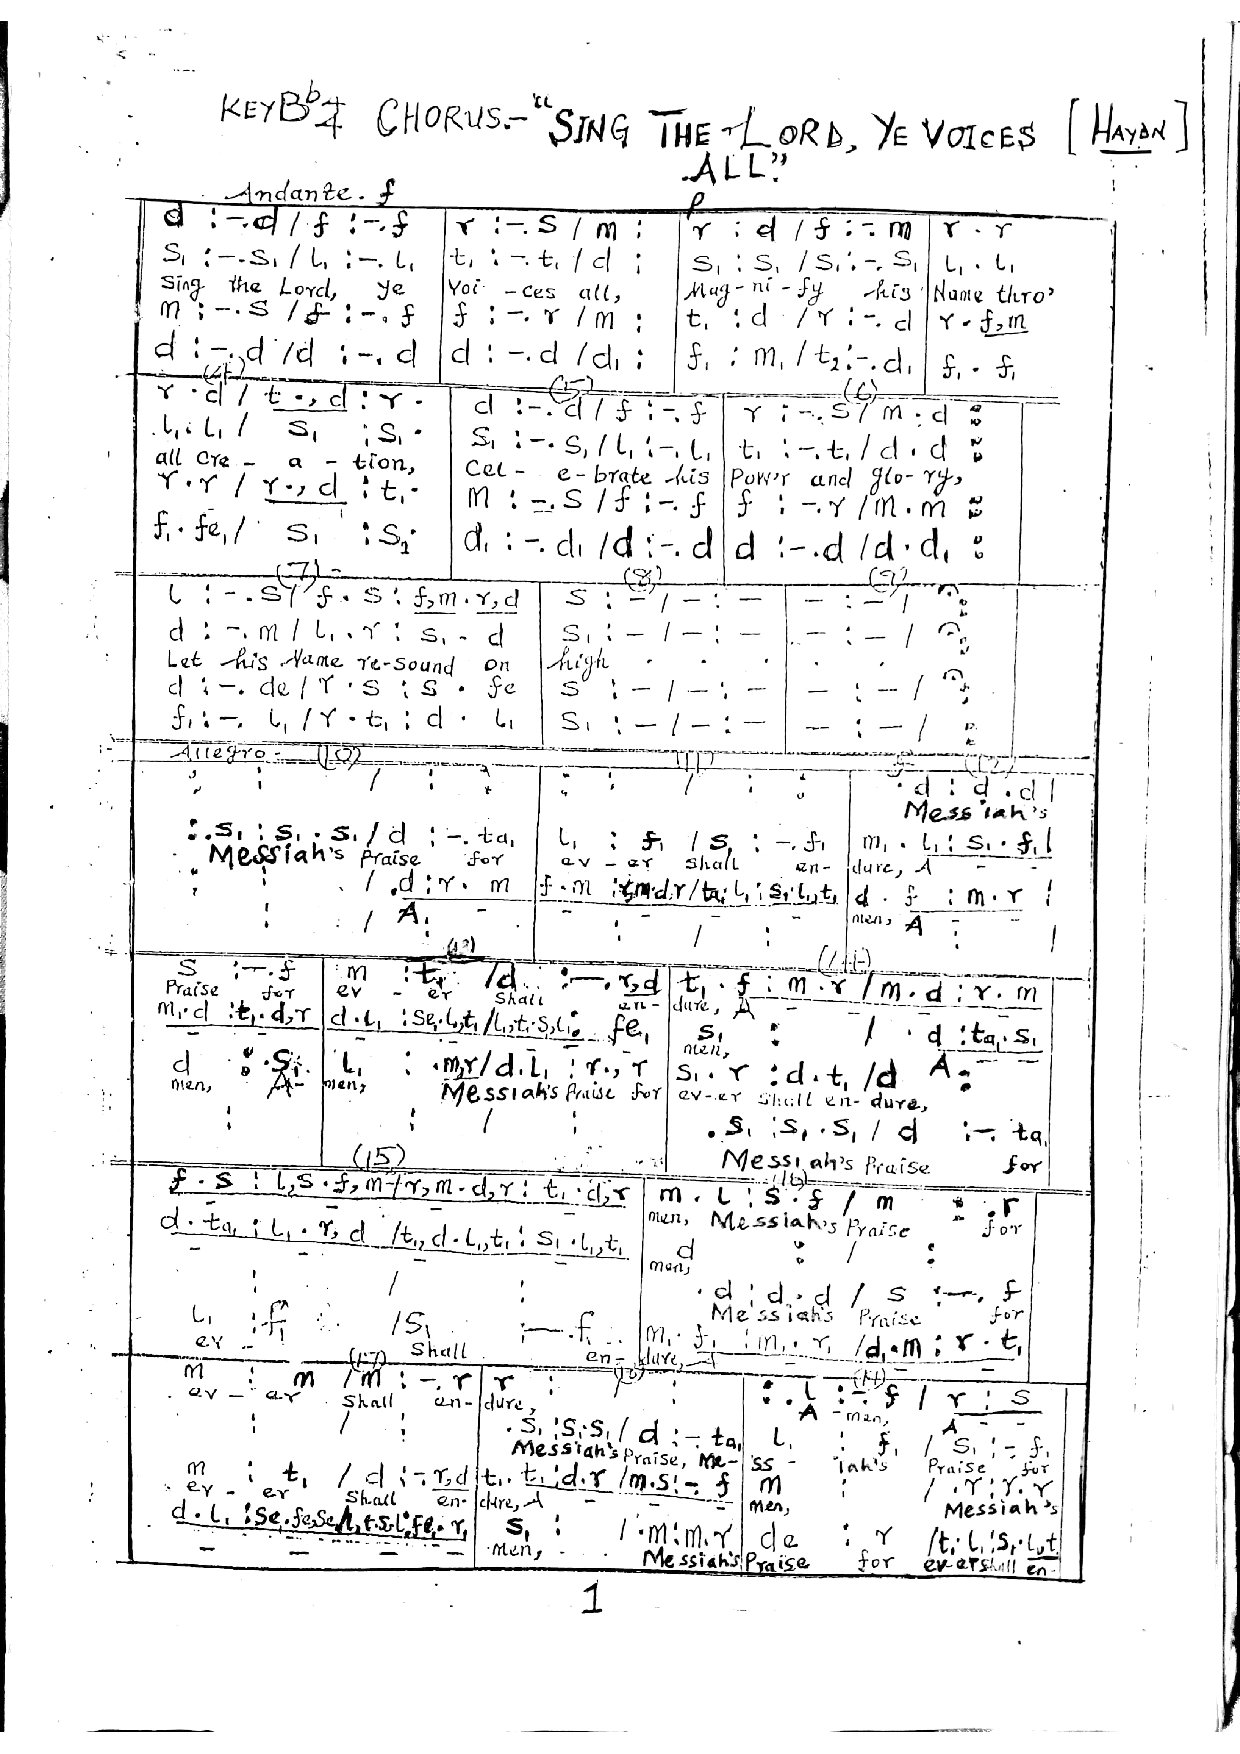 KEY B♭ 4/4 CHORUS.-"SING THE LORD, YE VOICES [HAYDN]
ALL"
Andante. f
p
d :-.d / f :-.f | r :-.s / m : | r : d / f :-.m | r . r
s₁ :-.s₁ / l₁ :-.l₁ | t₁ :-.t₁ / d : | s₁ : s₁ / s₁ :-.s₁ | l₁ . l₁
Sing the Lord, ye | Voi-ces all, | Mag-ni-fy his | Name thro'
m :-.s / f :-.f | f :-.r / m : | t₁ : d / r :-.d | r . f,m
d :-.d / d :-.d | d :-.d / d₁ : | f₁ : m₁ / t₂ :-.d₁ | f₁ . f₁
(4) (5) (6)
r . d / t₁ ., d : r . | d :-.d / f :-.f | r :-.s / m . d :
l₁ . l₁ / s₁ : s₁ . | s₁ :-.s₁ / l₁ :-.l₁ | t₁ :-.t₁ / d . d :
all cre - a - tion, | Cel - e-brate his | Pow'r and glo-ry,
r . r / r ., d : t₁ . | m :-.s / f :-.f | f :-.r / m . m :
f₁ . fe₁ / s₁ : s₂ . | d₁ :-.d₁ / d :-.d | d :-.d / d . d₁ :
(7) (8) (9)
l :-.s / f . s : f,m . r,d | s : - / - : - | - : - /
d :-.m / l₁ . r : s₁ . d | s₁ : - / - : - | - : - /
Let his Name re-sound on | high . . . . .
d :-.de / r . s : s . fe | s : - / - : - | - : - /
f₁ :-.l₁ / r . t₁ : d . l₁ | s₁ : - / - : - | - : - /
Allegro- (10) (11) f (12)
: / : | : / : | . d : d . d |
Messiah's
: . s₁ : s₁ . s₁ / d :-.ta₁ | l₁ : f₁ / s₁ :-.f₁ | m₁ . l₁ : s₁ . f₁ |
Messiah's Praise for | ev - er shall en- | dure, A -
/ . d : r . m | f . m : r,m.d,r / ta₁ . l₁ : s₁ . l₁,t₁ | d . f : m . r |
A - | - - - - | men, A -
(13) (14)
s :-.f | m : t₁ / d :-.r,d | t₁ . f : m . r / m . d : r . m
Praise for | ev - er shall en- | dure, A -
m . d : t₁ . d,r | d . l₁ : se₁ . l₁,t₁ / l₁,t₁ . s₁,l₁ : fe₁ | s₁ : / . d : ta₁ . s₁
men, A -
d : . s₁ | l₁ : . m,r / d . l₁ : r ., r | s₁ . r : d . t₁ / d :
men, A- | men, Messiah's Praise for | ev-er shall en-dure,
. s₁ : s₁ . s₁ / d :-.ta₁
Messiah's Praise for
(15) (16)
f . s : l,s . f,m / r,m . d,r : t₁ . d,r | m . l : s . f / m : . r
men, Messiah's Praise for
d . ta₁ : l₁ . r,d / t₁,d . l₁,t₁ : s₁ . l₁,t₁ | d : / :
men,
: / : | . d : d . d / s :-.f
Messiah's Praise for
l₁ : f₁ / s₁ :-.f₁ | m₁ . f₁ : m₁ . r₁ / d₁ . m : r . t₁
ev - shall en- | dure, A - - -
(17) (18) (19)
m : m / m :-.r | r : / : | : . l :-.f / r : s
ev - er shall en- | dure, | A -men, A -
: / : | . s₁ : s₁ . s₁ / d :-.ta₁ | l₁ : f₁ / s₁ :-.f₁
Messiah's Praise, Me- | ss - iah's Praise for
m : t₁ / d :-.r,d | t₁ . t₁ : d . r / m . s :-.f | m : / . r : r . r
ev - er shall en- | dure, A - - | men, Messiah's
d . l₁ : se₁ . fe₁,se₁ / l₁,t₁ . s₁,l₁ : fe₁ . r₁ | s₁ : / . m : m . r | de : r / t₁ . l₁ : s₁ . l₁,t₁
- - - - | men, Messiah's | Praise for ever shall en-
1